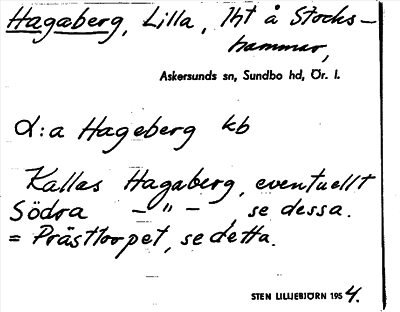 Hagaberg, Lilla, lht å Stocks-
hammar,
Askersunds sn, Sundbo hd, Ör. l.
α:a Hageberg kb
Kallas Hagaberg, eventuellt
Södra —"—, se dessa.
= Prästtorpet, se detta.
STEN LILLIEBJÖRN 1954.